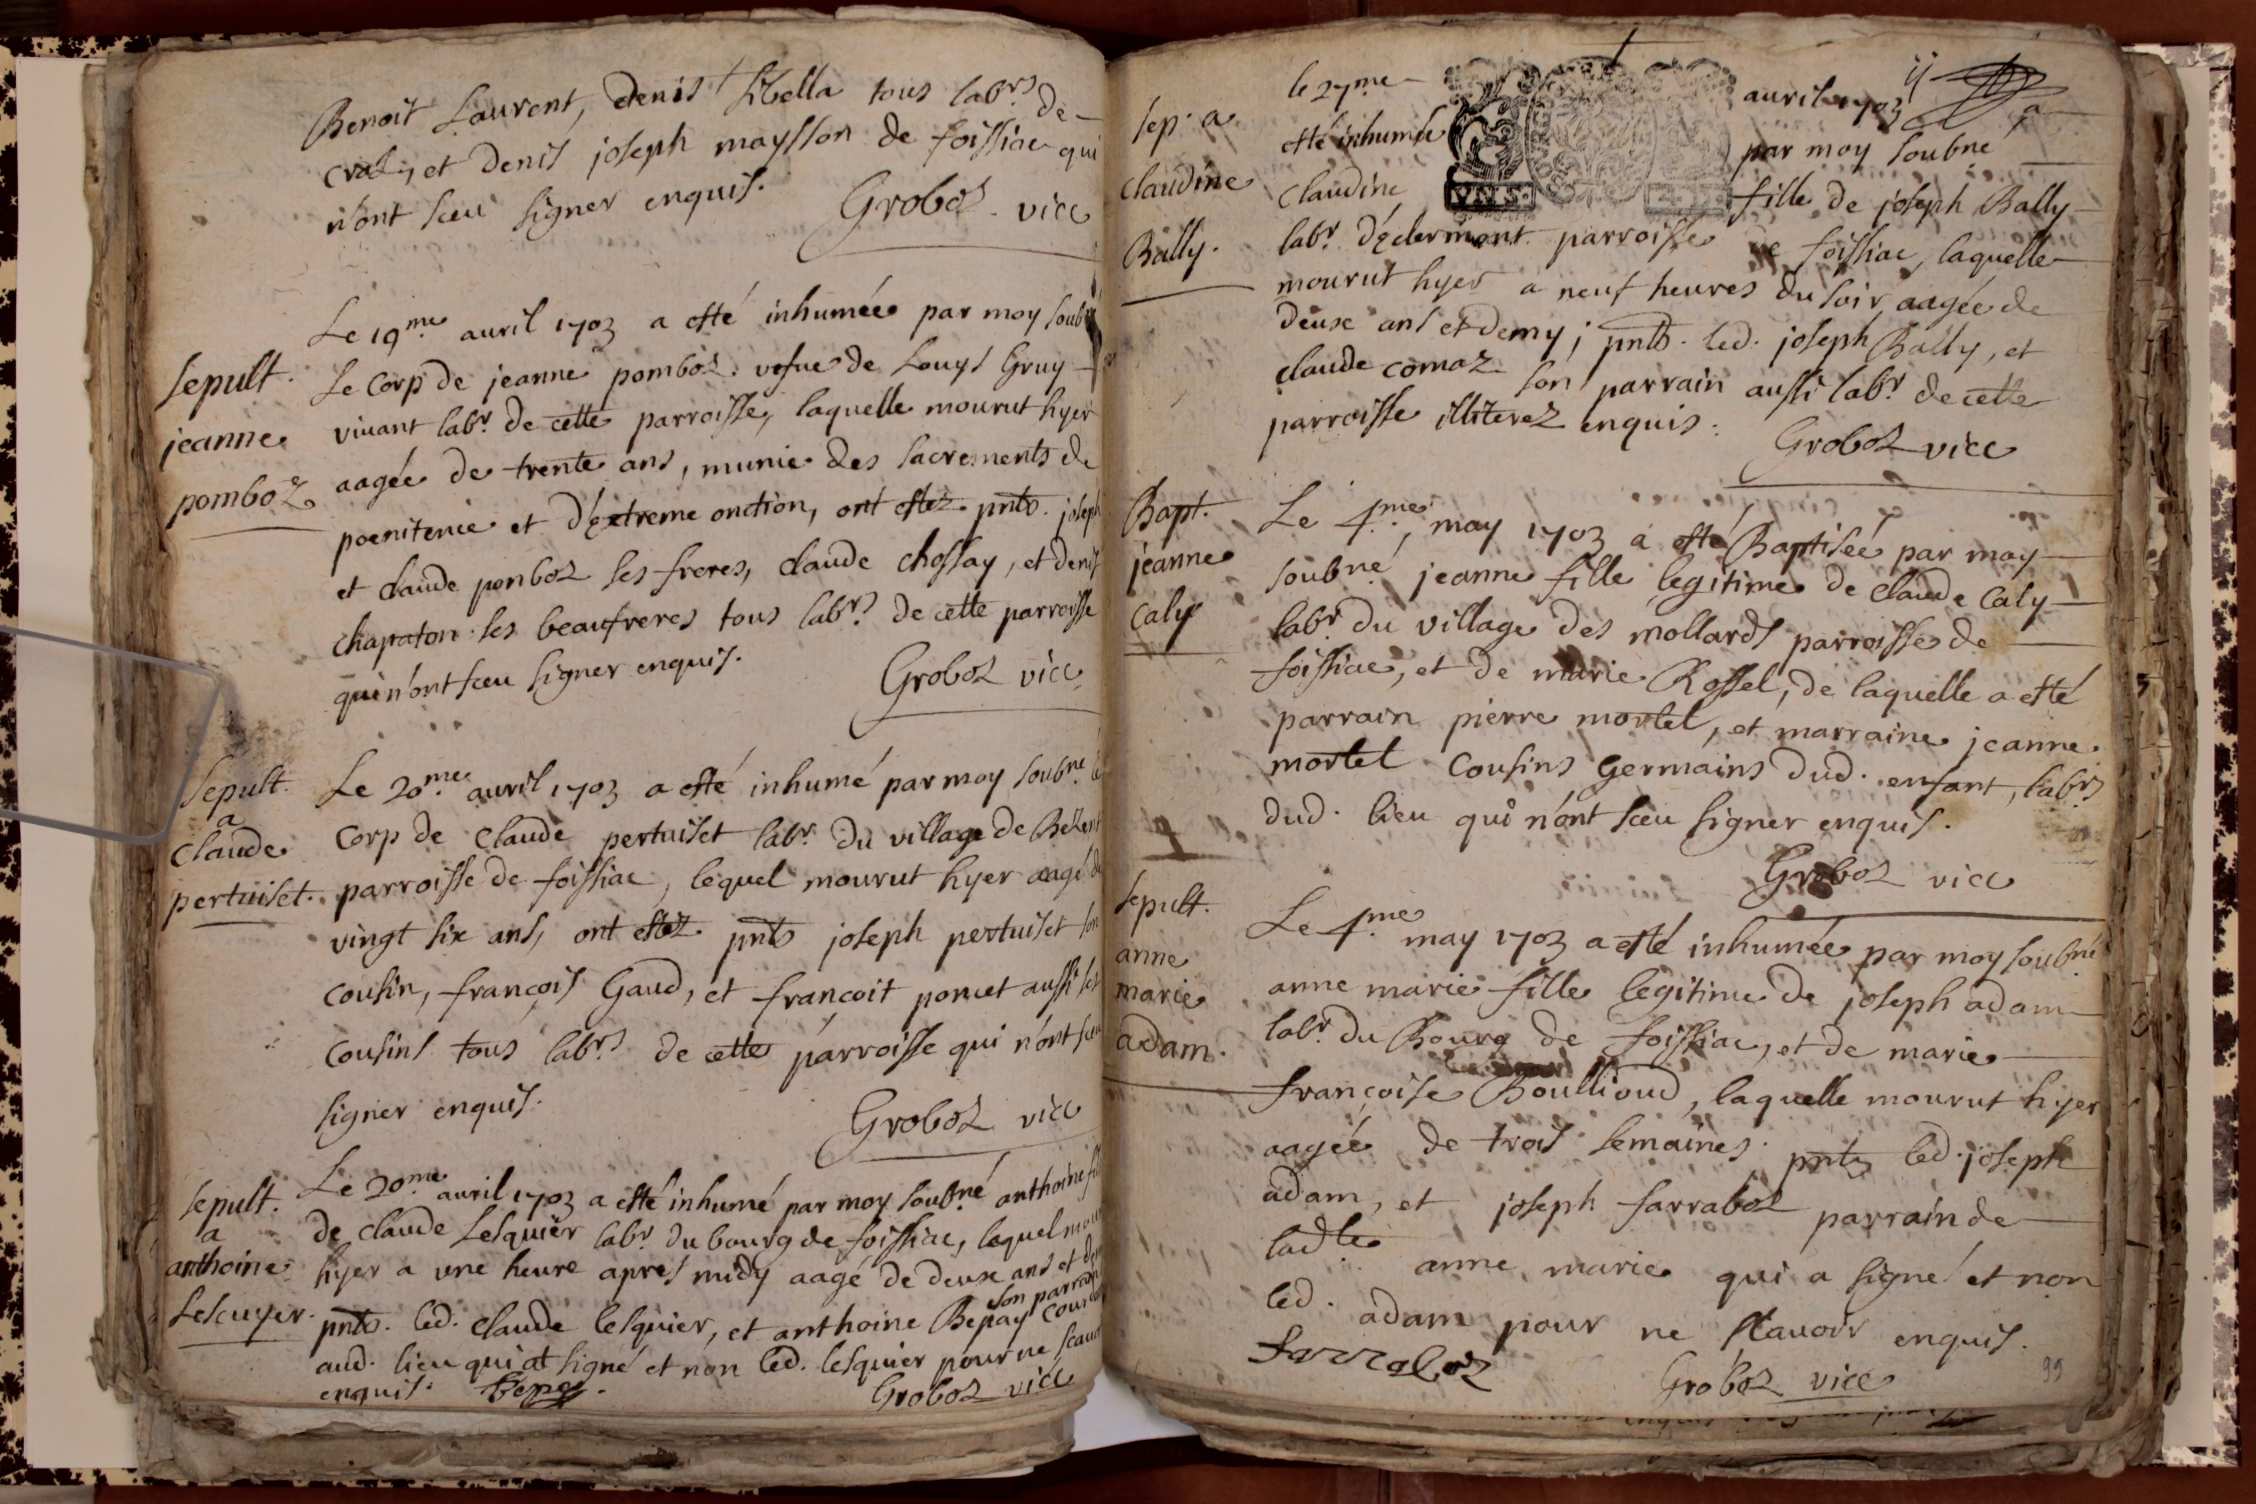 Benoit Laurent, denis sibella tous labrs. de
cras, et denis joseph maysson de foissiac qui
n'ont sceu signer enquis.
Groboz vice
Sepult.
jeanne
pomboz
Le 19me. auril 1703 a esté inhumée par moy soub
Le corp de jeanne pomboz. vefue de Louys Gruy
viuant labr. de cette parroisse, laquelle mourut hyer
aagée de trente ans, munie des sacrements de
poenitence et d'extreme onction, ont estez pnts. joseph
et claude ponboz ses freres, claude chossay, et denis
chapaton ses beaufreres tous labrs. de cette parroisse
qui n'ont sceu signer enquis.
Groboz vice
Sepult.
a
claude
pertuiset.
Le 20me. auril 1703 a esté inhumé par moy soubné. le
corp de claude pertuiset labr. du village de
parroisse de foissiac, lequel mourut hyer aagé de
vingt six ans, ont estez pnts joseph pertuiset son
cousin, françois Gaud, et francoit poncet aussi ses
cousins tous labrs. de cette parroisse qui n'ont sceu
signer enquis.
Groboz vice
sepult.
a
anthoine
Lescuyer.
Le 20me. auril 1703 a esté inhumé par moy soubné anthoine fi
de claude Lesquier labr. du bourg de foissiac, lequel mou
hyer a une heure apres midy aagé de deux ans et de
son parrain
pnts. led. claude lesquier, et anthoine Bepay
aud. lieu qui at signé et non led. lesquier pour ne scauoir
enquis.
Groboz vice
ij
sep. a
claudine
Bally.
le 27me auril 1703 a
esté inhumée par moy soubné
claudine fille de joseph Bally
labr. d'éclermont parroisse de foissiac, laquelle
mourut hyer a neuf heures du soir aagée de
deux ans et demy; pnts. led. joseph Bally, et
claude comaz son parrain aussi labr. de cette
parroisse illiterez enquis.
Groboz vice
Bapt.
jeanne
caly
Le 4me. may 1703 a esté Baptisée par moy
soubné jeanne fille legitime de claude caly
labr. du village des mollards parroisse de
foissiac, et de marie Rossel, de laquelle a esté
parrain pierre mortel, et marraine jeanne
mortel cousins germains dud. enfant, labrs
dud. lieu qui n'ont sceu signer enquis.
Groboz vice
sepult.
anne
marie
adam.
Le 4me. may 1703 a esté inhumée par moy soubné
anne marie fille legitime de joseph adam
labr. du Bourg de foissiac, et de marie
françoise Boullioud, laquelle mourut hyer
aagée de trois semaines. pnts led. joseph
adam, et joseph farraboz parrain de
ladte. anne marie qui a signé et non
led. adam pour ne scauoir enquis.
farraboz
Groboz vice
99